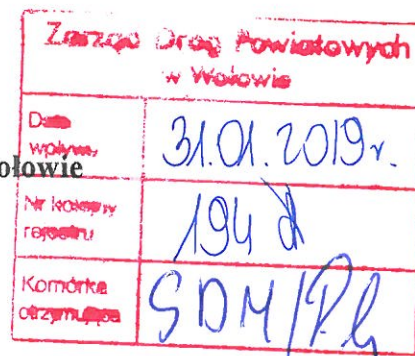 Zarząd Dróg Powiatowych
w Wołowie
Data
wpływu
31.01.2019r.
ołowie
Nr kolejny
rejestru
194
Komórka
otrzymująca
SDM/